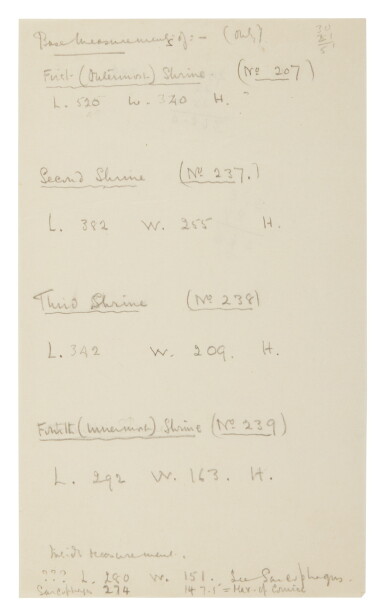 Base measurements of :- (only)
First (Outermost) Shrine. (No 207)
L. 520 W. 340 H.
Second Shrine (No 237.)
L. 382 W. 255 H.
Third Shrine (No 238)
L. 342 W. 209. H.
Fourth (innermost) Shrine (No 239)
L. 292 W. 163. H.
Inside measurement.
??? L. 280 W. 151. See Sarcophagus.
Sarcophagus 274 147.1 = Max. of Cornice